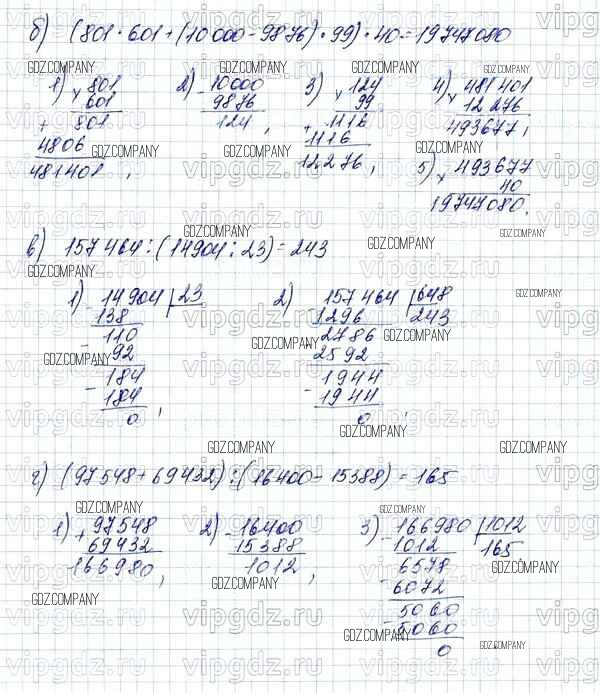 б) (801 · 601 + (10 000 - 9876) · 99) · 40 = 19747080
1) × 801
601
+ 801
4806
481401,
2) - 10000
9876
124,
3) × 124
99
+ 1116
1116
12276,
4) × 481 401
12 276
493677,
5) × 493677
40
19747080.
в) 157 464 : (14904 : 23) = 243
1) - 14904 | 23
138
- 110
92
- 184
184
0,
2) - 157 464 | 648
1296 243
- 2786
2592
- 1944
1944
0.
г) (97548 + 69432) : (16400 - 15388) = 165
1) + 97548
69432
166980,
2) - 16400
15388
1012,
3) - 166980 | 1012
1012 165
- 6578
6072
- 5060
5060
0
GDZ.COMPANY
vipgdz.ru